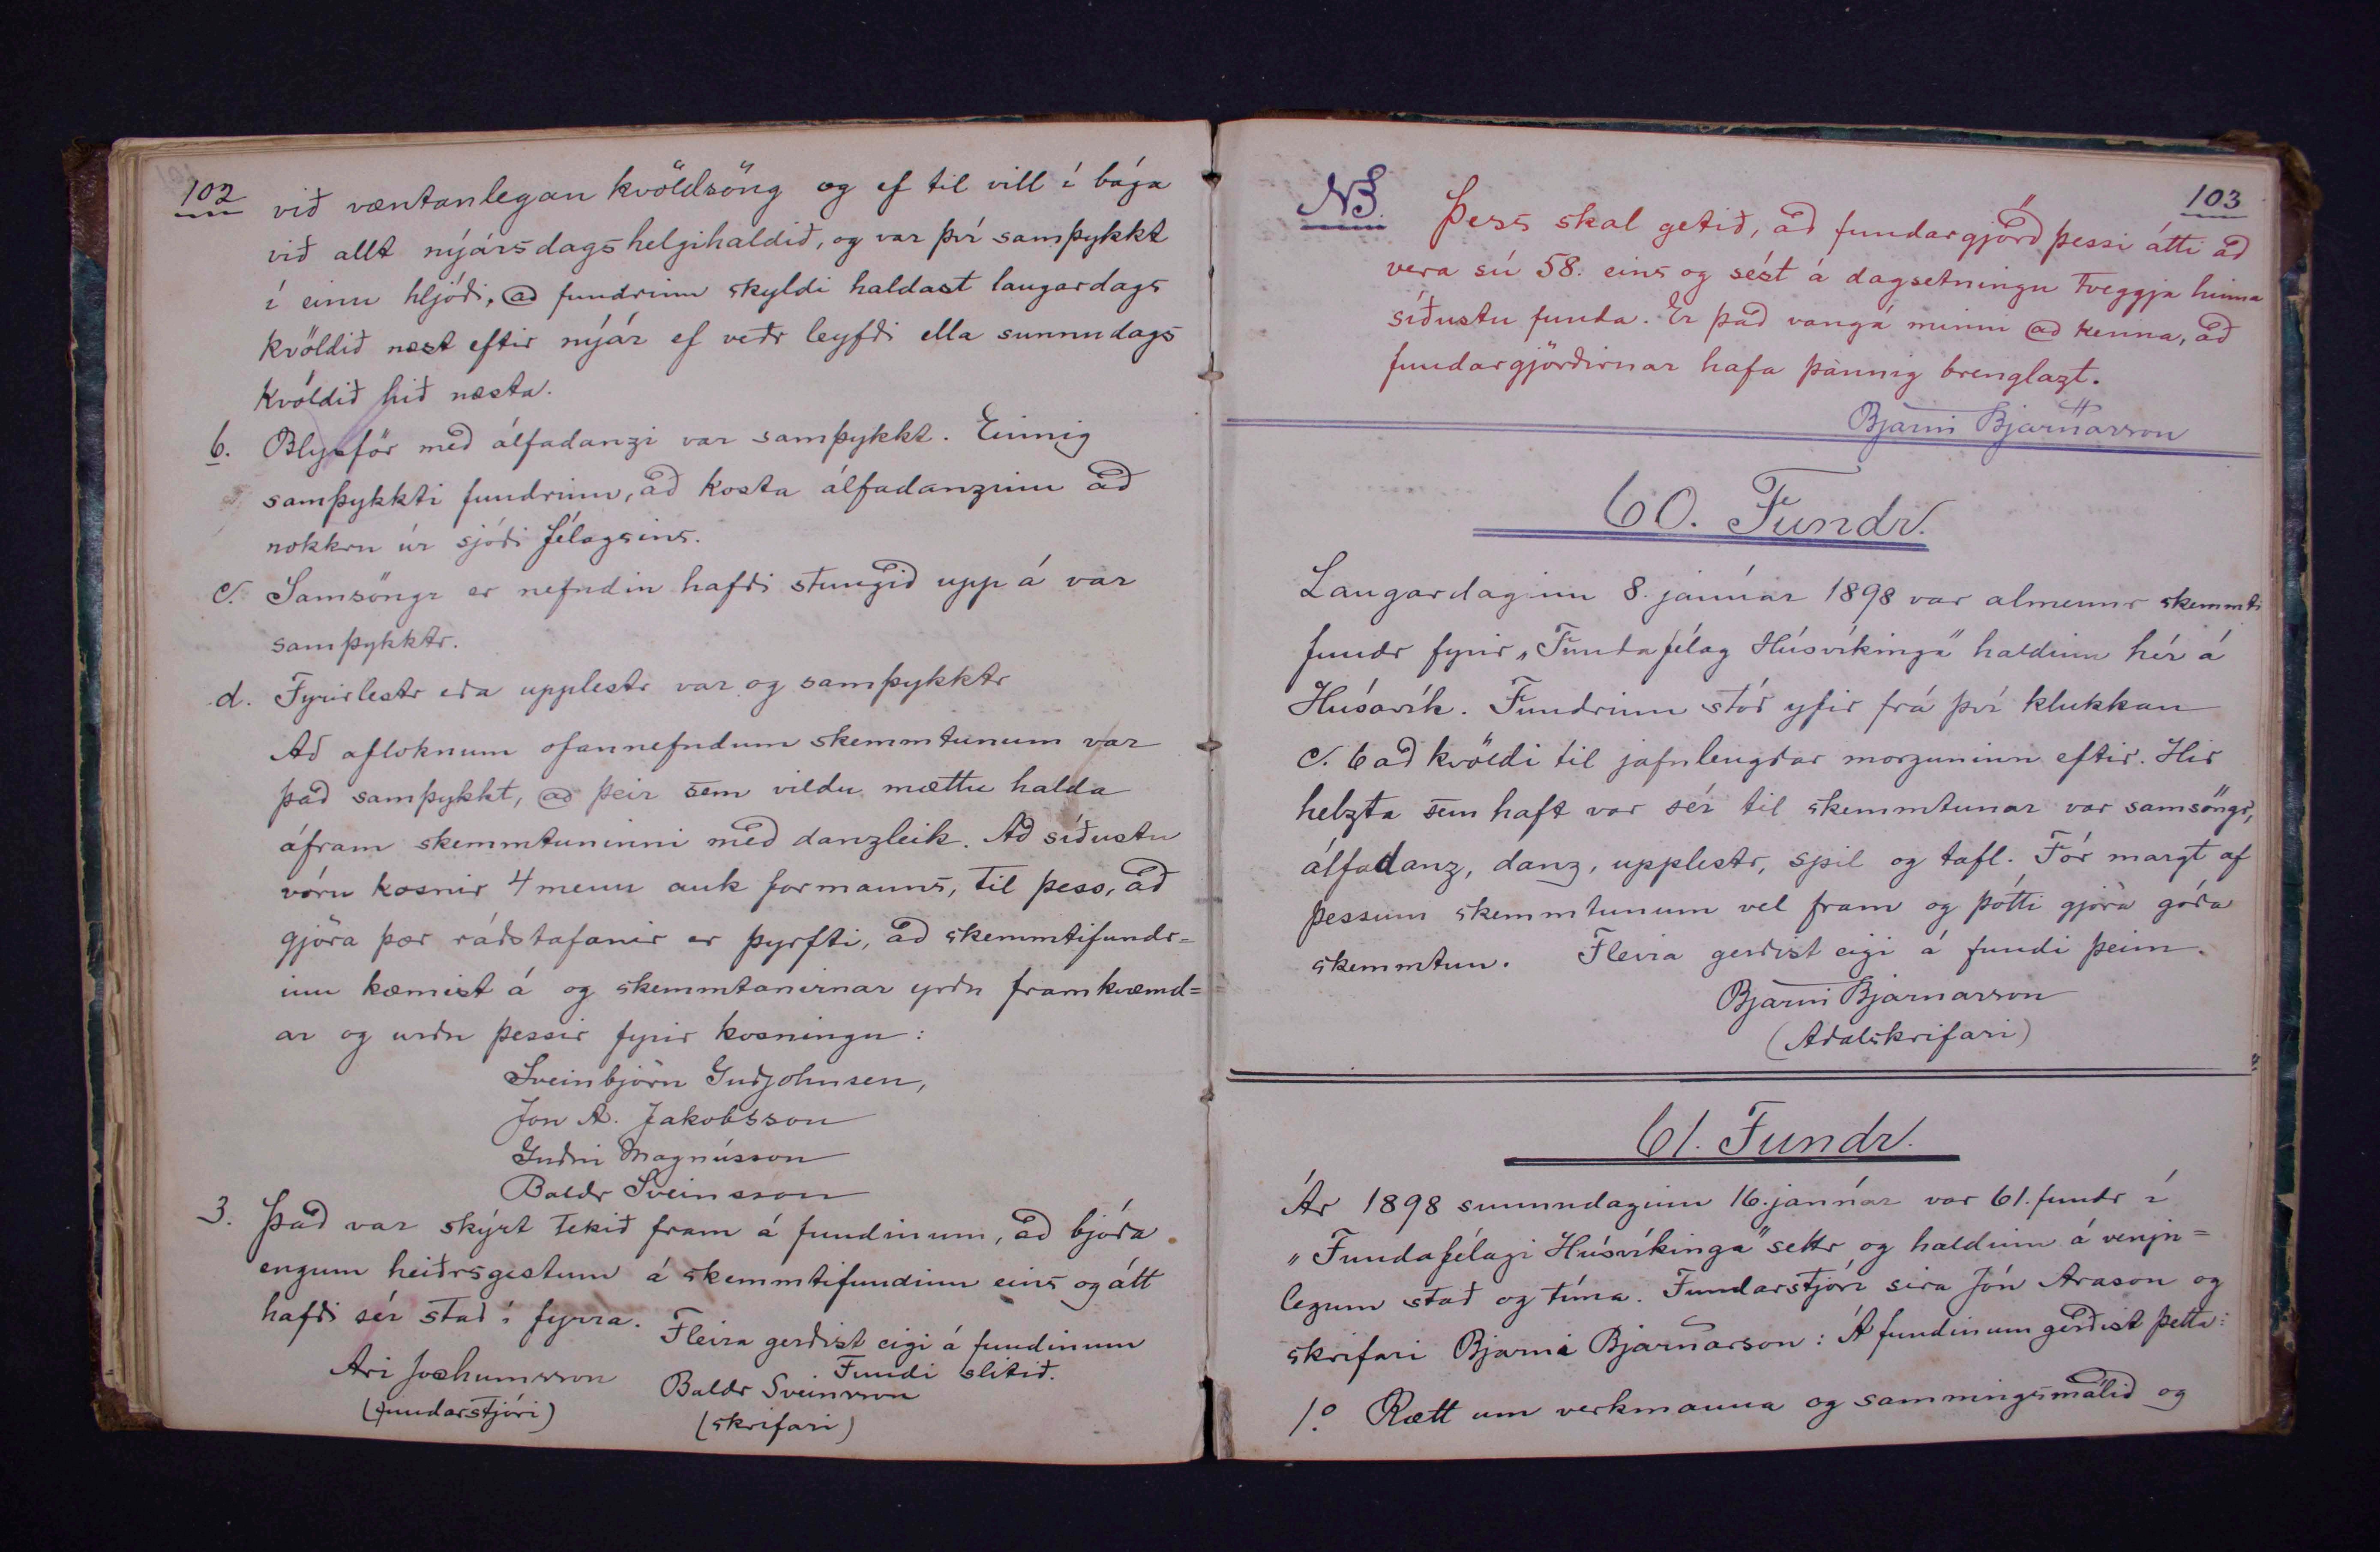 102
við væntanlegan kvöldsöng og ef til vill í bága
við allt nýársdagshelgihaldið, og var því samþykkt
í einu hljóði, að fundrinn skyldi haldast laugardags
kvöldið næst eftir nýár ef veðr leyfði ella sunnudags
kvöldið hið næsta.
b. Blysför með álfadanzi var samþykkt. Einnig
samþykkti fundrinn, að kosta álfadanzinn að
nokkru úr sjóði félagsins.
c. Samsöngr er nefndin hafði stungið upp á var
samþykktr.
d. Fyrirlestr eða upplestr var og samþykktr
Að afloknum ofannefndum skemmtunum var
það samþykkt, að þeir sem vildu mættu halda
áfram skemmtuninni með danzleik. Að síðustu
vóru kosnir 4 menn auk formanns, til þess, að
gjöra þær ráðstafanir er þyrfti, að skemmtifundr=
inn kæmist á og skemmtanirnar yrðu framkvæmd=
ar og urðu þessir fyrir kosningu:
Sveinbjörn Guðjohnsen,
Jón A. Jakobsson
Guðni Magnússon
Baldr Sveinsson
3. Það var skýrt tekið fram á fundinum, að bjóða
engum heiðrsgestum á skemmtifundinn eins og átt
hafði sér stað í fyrra. Fleira gerðist eigi á fundinum
Fundi slitið.
Ari Jochumsson Baldr Sveinsson
(fundarstjóri) (skrifari)
103
NB. Þess skal getið, að fundargjörð þessi átti að
vera sú 58. eins og sést á dagsetningu tveggja hinna
síðustu funda. Er það vangá minni að kenna, að
fundargjörðirnar hafa þannig brenglazt.
Bjarni Bjarnarson
60. Fundr.
Laugardaginn 8. janúar 1898 var almennr skemmti
fundr fyrir „Fundafélag Húsvíkinga" haldinn hér á
Húsavík. Fundrinn stóð yfir frá því klukkan
c. 6 að kvöldi til jafnlengdar morguninn eftir. Hið
helzta sem haft var sér til skemmtunar var samsöngr,
álfadanz, danz, upplestr, spil og tafl. Fór margt af
þessum skemmtunum vel fram og þótti gjöra góða
skemmtun. Fleira gerðist eigi á fundi þeim.
Bjarni Bjarnarson
(Aðalskrifari)
61. Fundr.
Ár 1898 sunnudaginn 16. janúar var 61. fundr í
„Fundafélagi Húsvíkinga" settr og haldinn á venju=
legum stað og tíma. Fundarstjóri sira Jón Arason og
skrifari Bjarni Bjarnarson: Á fundinum gerðist þetta:
1.o Rætt um verkmanna og samningsmálið og